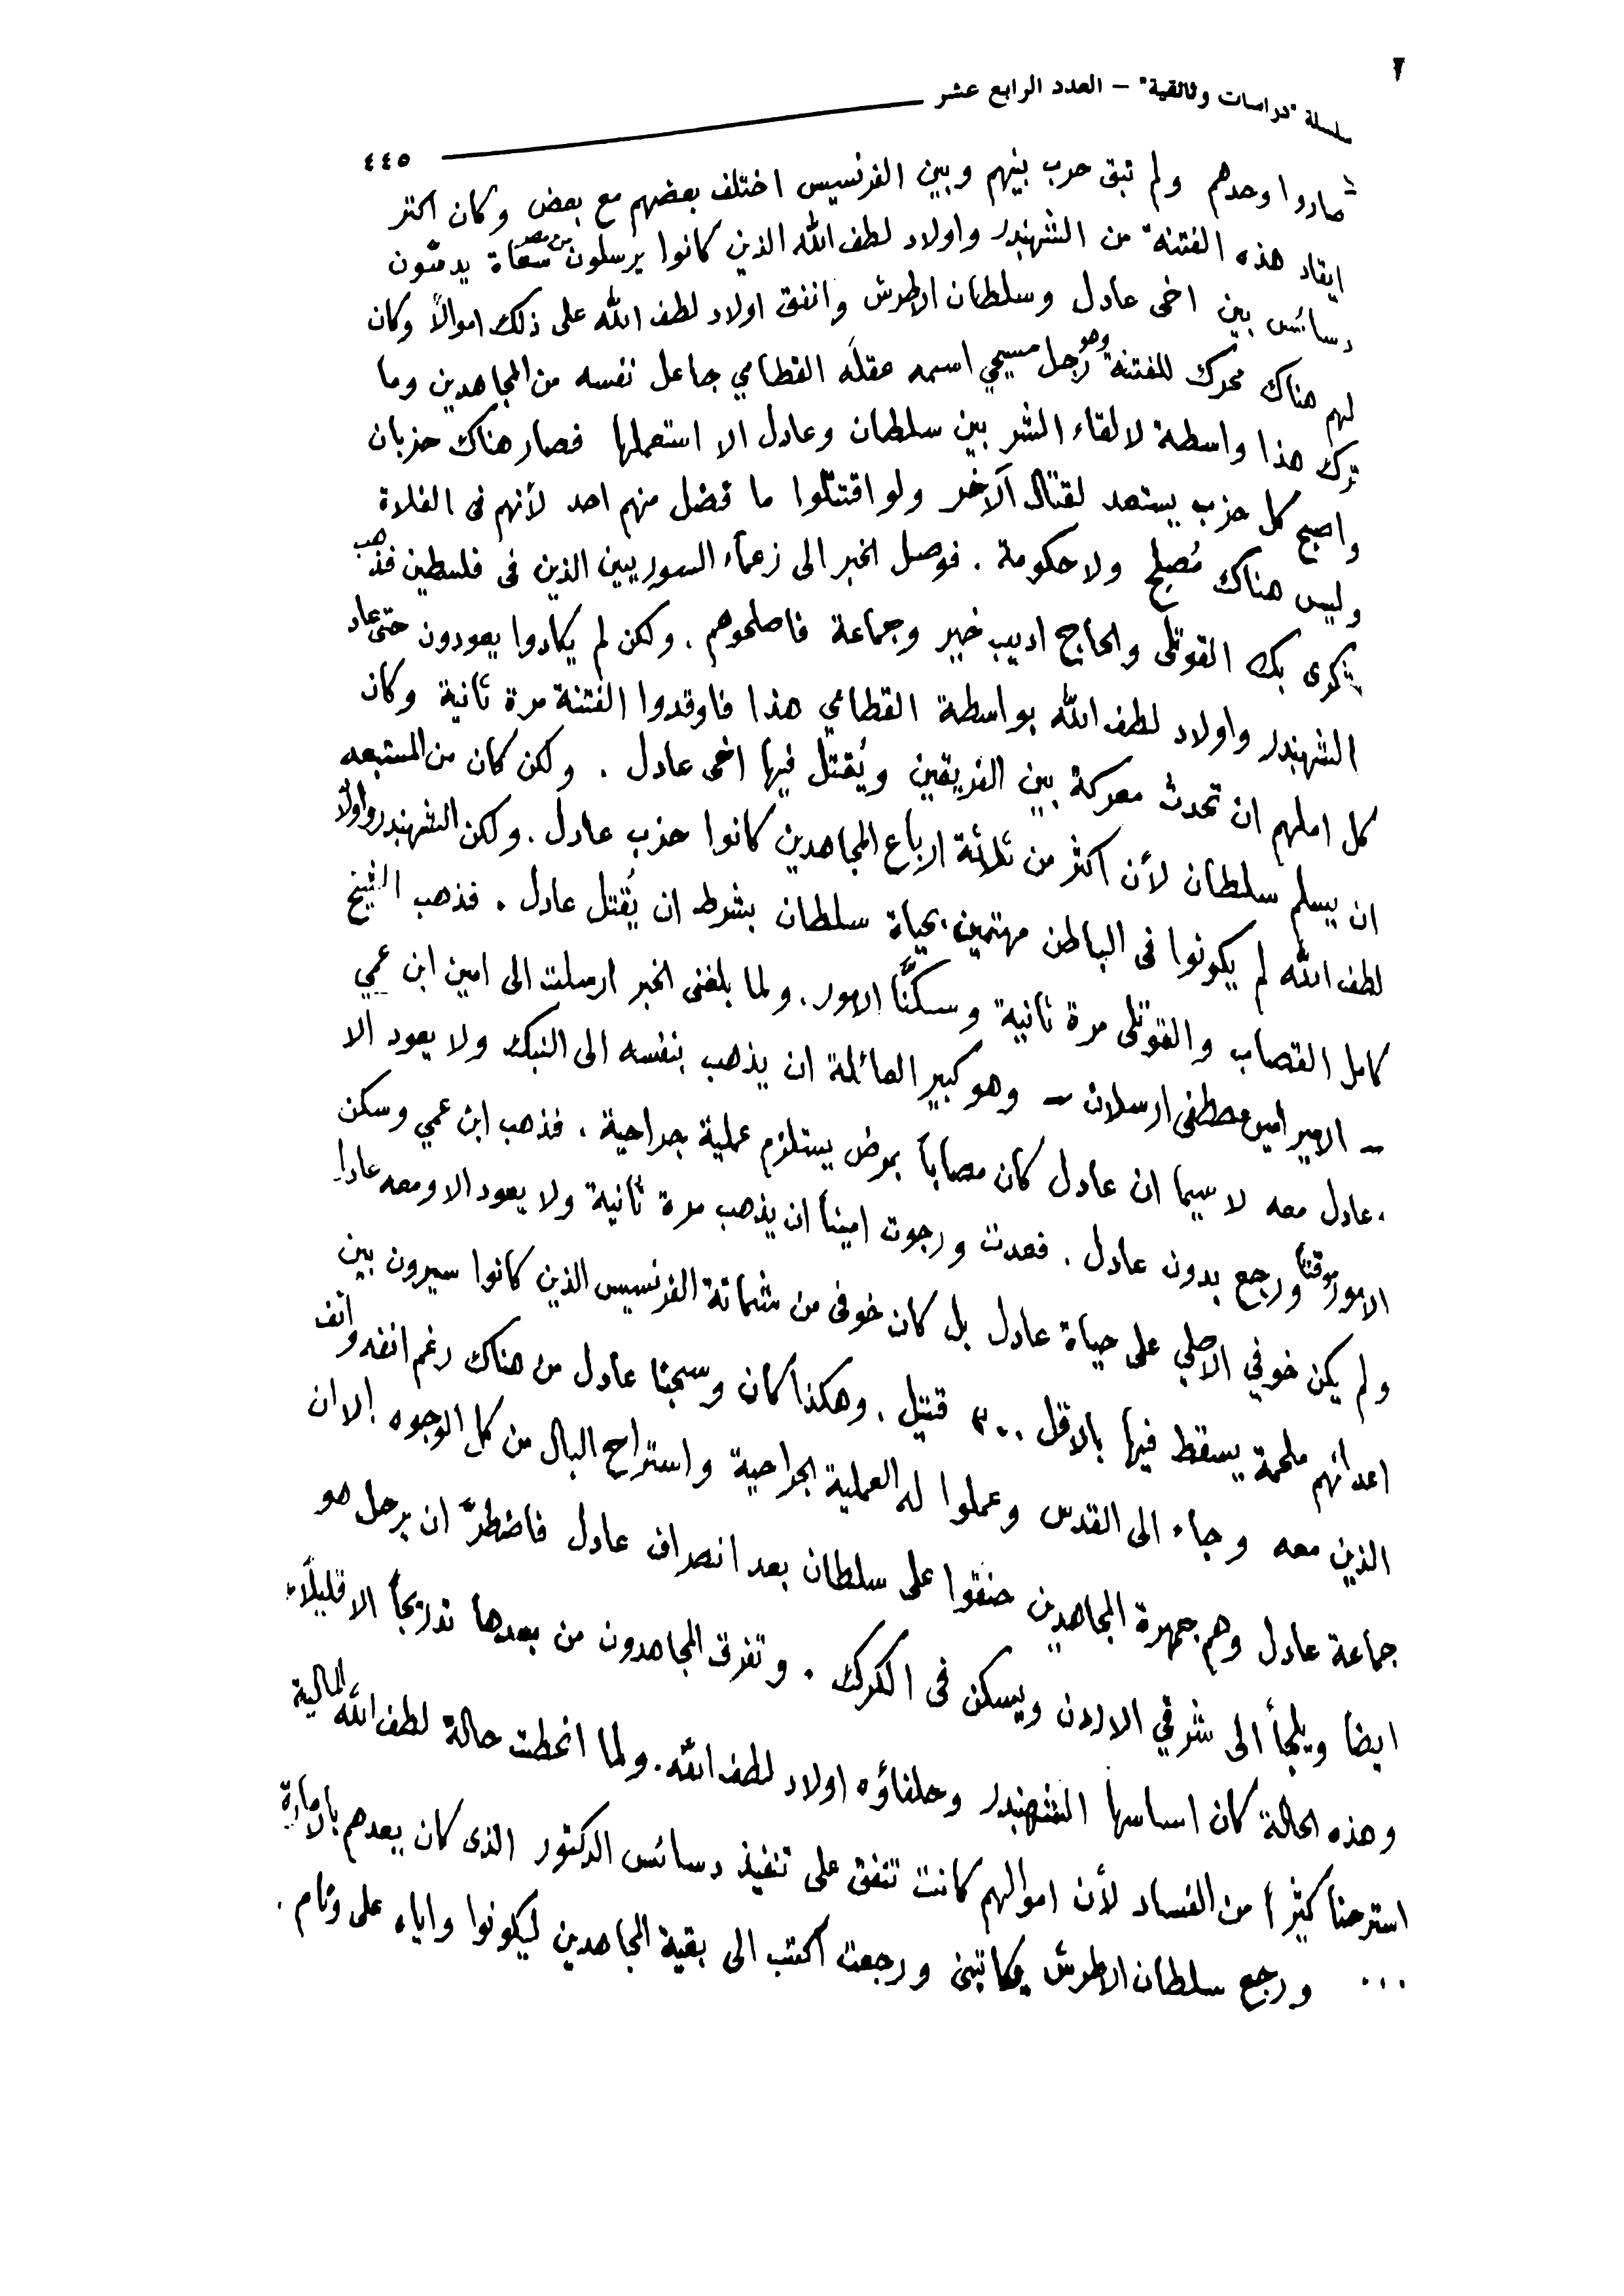 سلسلة "دراسات وثائقية" – العدد الرابع عشر
٤٤٥
صاروا وحدهم ولم تبق حرب بينهم وبين الفرنسيس اختلف بعضهم مع بعض وكان اكثر
ايقاد هذه الفتنة من الشهبندر واولاد لطف الله الذين كانوا يرسلون من مصر سعاة يدسّون
دسائس بين اخي عادل وسلطان الاطرش وانفق اولاد لطف الله على ذلك اموالاً وكان
لهم هناك محرك للفتنة وهو رجل مسيحي اسمه عقله القطامي جاعل نفسه من المجاهدين وما
ترك هذا واسطة لالقاء الشر بين سلطان وعادل الا استعملها فصار هناك حزبان
واصبح كل حزب يستعد لقتال الآخر ولو اقتتلوا ما فضل منهم احد لأنهم في الفلاة
وليس هناك مُصلح ولا حكومة . فوصل الخبر الى زعماء السوريين الذين في فلسطين فذهب
شكري بك القوتلى والحاج اديب خير وجماعة فاصلحوهم . ولكن لم يكادوا يعودون حتى عاد
الشهبندر واولاد لطف الله بواسطة القطامي هذا فاوقدوا الفتنة مرة ثانية وكان
كل املهم ان تحدث معركة بين الفريقين ويُقتل فيها اخي عادل . ولكن كان من المستبعد
ان يسلم سلطان لأن اكثر من ثلاثة ارباع المجاهدين كانوا حزب عادل . ولكن الشهبندر واولاد
لطف الله لم يكونوا في الباطن مهتمين بحياة سلطان بشرط ان يُقتل عادل . فذهب الشيخ
كامل القصاب والقوتلى مرة ثانية وسكنَّا الامور . ولما بلغني الخبر ارسلت الى امين ابن عمي
– الامير امين مصطفى ارسلان – وهو كبير العائلة ان يذهب بنفسه الى النبك ولا يعود الا
وعادل معه لا سيما ان عادل كان مصاباً بمرض يستلزم عملية جراحية . فذهب ابن عمي وسكن
الامور موقتاً ورجع بدون عادل . فعدت ورجوت اميناً ان يذهب مرة ثانية ولا يعود الا ومعه عادل
ولم يكن خوفي الاصلي على حياة عادل بل كان خوفي من شماتة الفرنسيس الذين كانوا سيرون بين
اعدائهم ملحمة يسقط فيها بالاقل ٣٠٠ قتيل . وهكذا كان وسحبنا عادل من هناك رغم انفه وانف
الذين معه وجاء الى القدس وعملوا له العملية الجراحية واستراح البال من كل الوجوه الا ان
جماعة عادل وهم جمهرة المجاهدين حنقوا على سلطان بعد انصراف عادل فاضطرّ ان يرحل هو
ايضاً ويلجأ الى شرقي الاردن ويسكن في الكرك . وتفرق المجاهدون من بعدها تدريجاً الا قليلاً
وهذه الحالة كان اساسها الشهبندر وحلفاؤه اولاد لطف الله . ولما انحطت حالة لطف الله المالية
استرحنا كثيراً من الفساد لأن اموالهم كانت تنفق على تنفيذ دسائس الدكتور الذى كان يعدهم بالامارة
... ورجع سلطان الاطرش يكاتبني ورجعت اكتب الى بقية المجاهدين ليكونوا واياه على وئام .